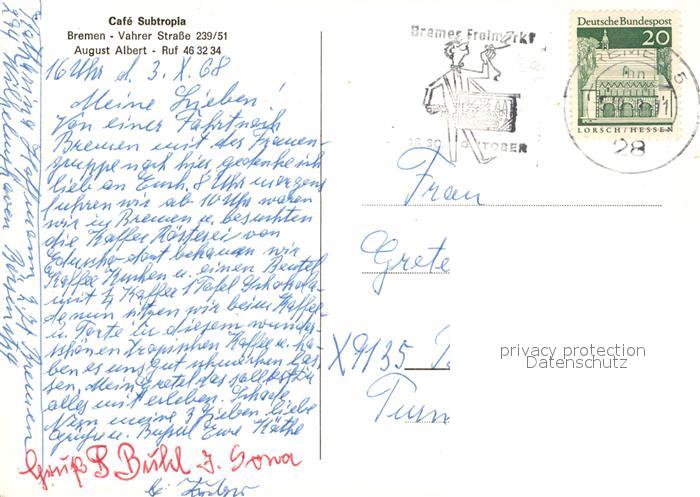 Café Subtropia
Bremen - Vahrer Straße 239/51
August Albert - Ruf 46 32 34
16 Uhr d. 3. X. 68
Meine Lieben!
Von einer Fahrt nach
Bremen mit der Frauen-
gruppe nach hier gedenke ich
lieb an Euch. 8 Uhr morgens
fuhren wir ab 10 Uhr waren
wir in Bremen u. besuchten
die Kaffee Rösterei von
Eduscho dort bekamen wir
Kaffee Kuchen u. einen Beutel
mit Kaffee 1 Tafel Schokola-
de nun sitzen wir beim Kaffee
u. Torte in diesem wunder-
schönen tropischen Kaffee u. ha-
ben es uns gut schmecken las-
sen. Mein Gretel das solltest Du
alles mit erleben. Schade
Nun meine 3 Lieben liebe
Grüße u. Bussel Eure Käthe
Gruß Buhl
Bremer Freimarkt
OKTOBER
Deutsche Bundespost
20
LORSCH/HESSEN
BREMEN 5
28
Frau
Grete
X9135
Turn
privacy protection
Datenschutz